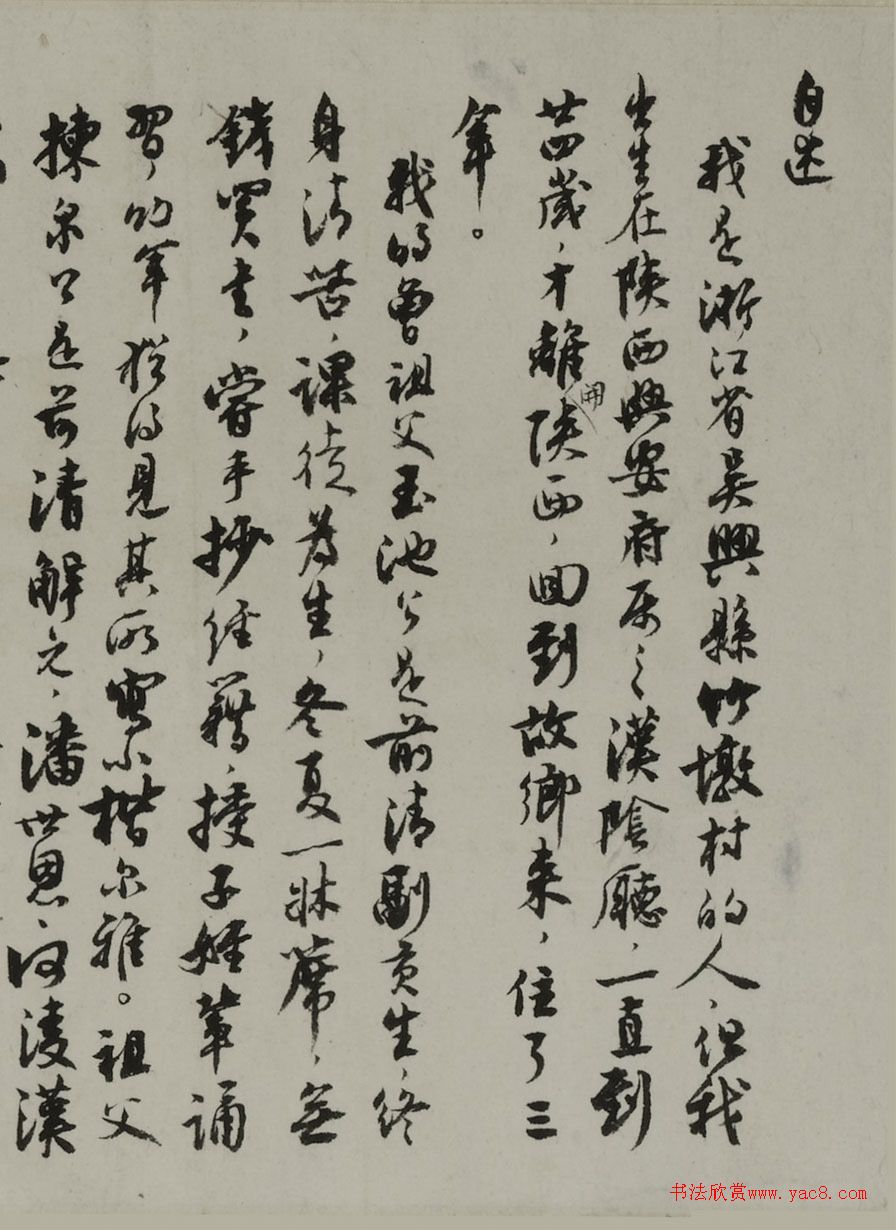 自述
我是浙江省吴興縣竹墩村的人，但我
出生在陝西興安府屬之漢陰廳，一直到
廿四歲，才離開陝西，回到故鄉來，住了三
年。
我的曾祖父玉池公是前清副貢生，終
身清苦，課徒為生，冬夏一牀席，無
錢買書，嘗手抄經籍，授子姪輩誦
習，幼年猶得見其所寫小楷尔雅。祖父
揀泉公是前清解元，潘世恩、何淩漢
书法欣赏www.yac8.com